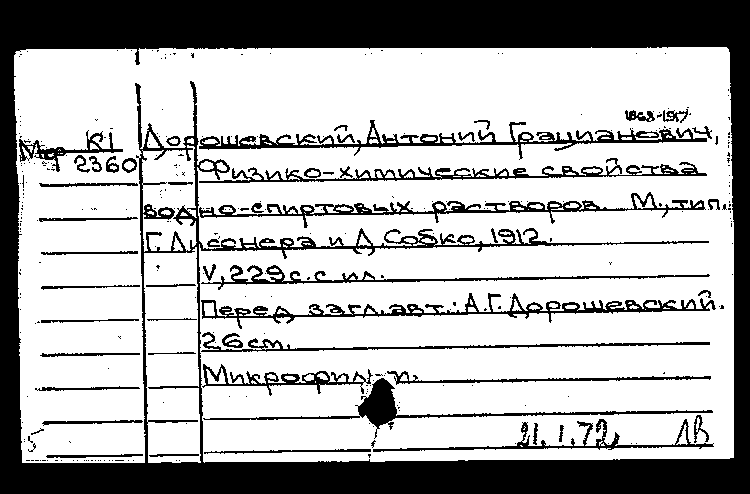 1868-1917
К1 Дорошевский, Антоний Грацианович,
2360 Физико-химические свойства
водно-спиртовых растворов. М., тип.
Г. Лисснера и Д. Собко, 1912.
V, 229 с. с ил.
Перед загл. авт.: А.Г. Дорошевский.
26 см.
5 21.1.72 ЛВ